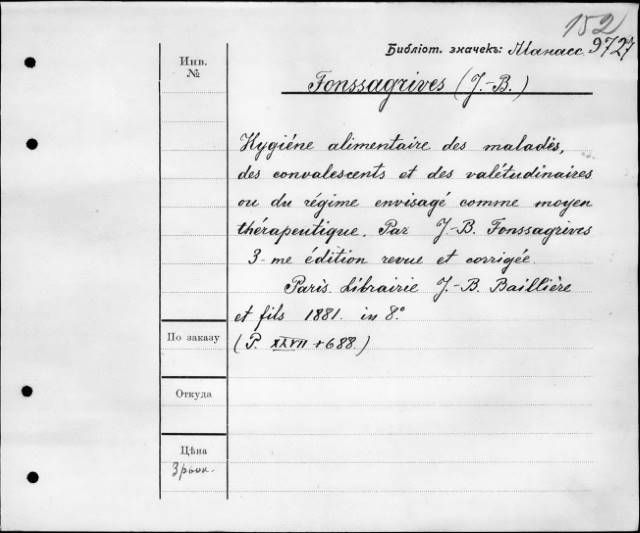 152
Библіот. значекъ: Манасс. 9727
Инв.
№
Fonssagrives (J.-B.)
Hygiéne alimentaire des maladès,
des convalescents et des valétudinaires
ou du régime envisagé comme moyen
thérapeutique. Par J.-B. Fonssagrives
3-me édition revue et corrigée.
Paris. Librairie J.-B. Baillière
et fils 1881. in 8.º
(P. XXVII + 688.)
По заказу
Откуда
Цѣна